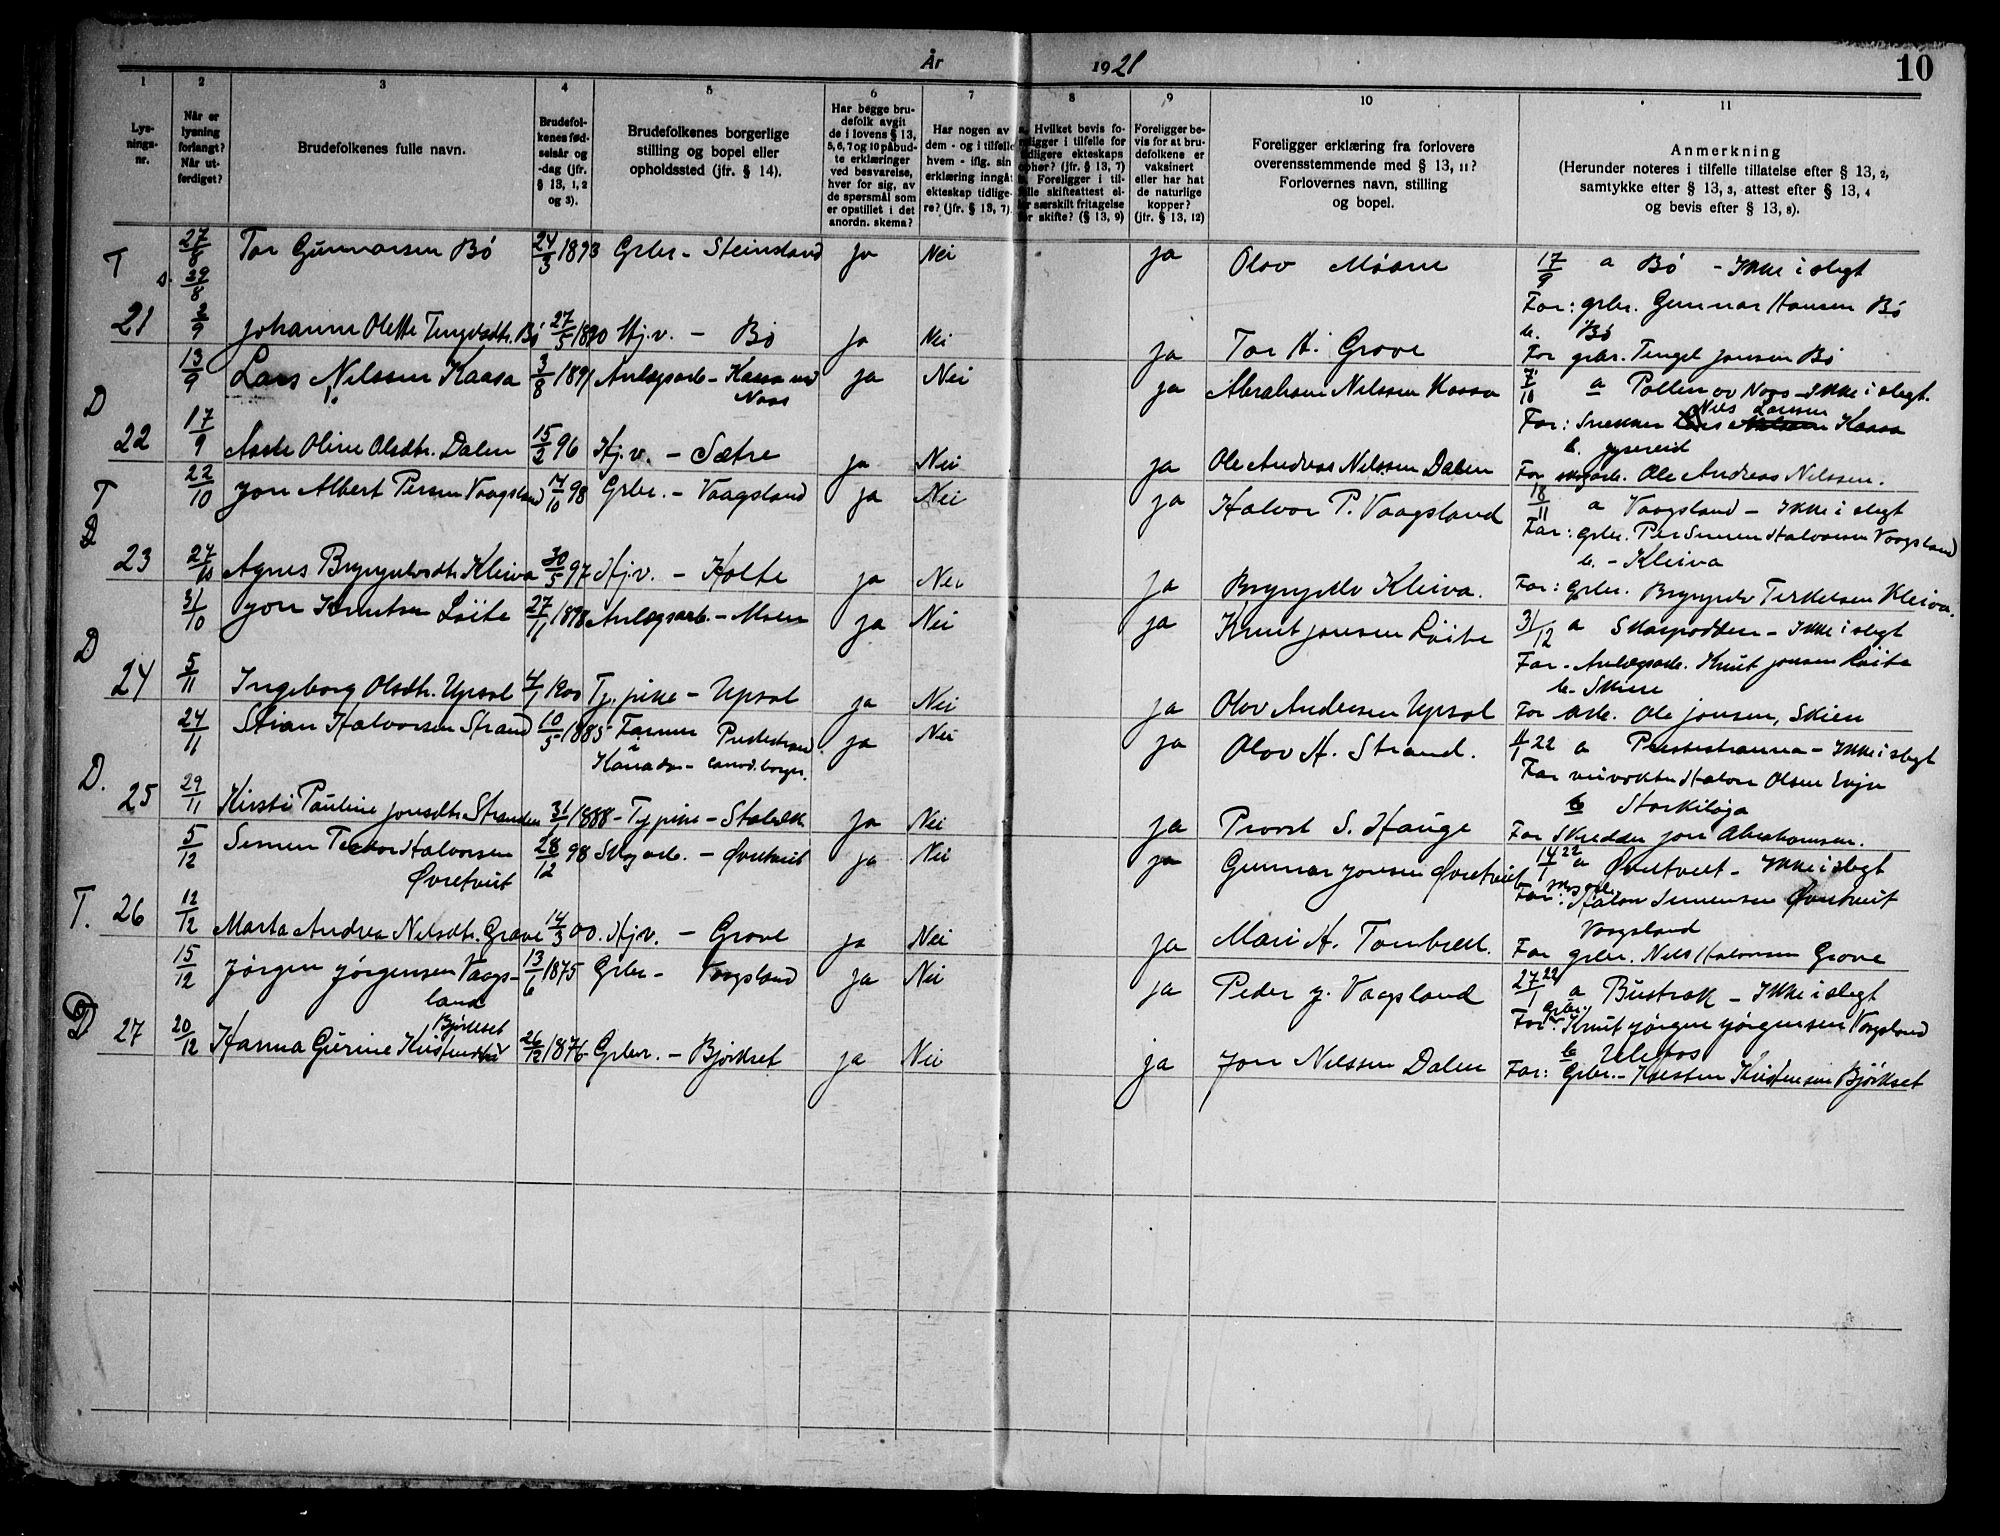 År 1921
10
1
2
3
4
5
6
7
8
9
10
11
Lys-
nings-
nr.
Når er
lysning
forlangt?
Når ut-
ferdiget?
Brudefolkenes fulle navn.
Brudefol-
kenes fød-
selsår og
-dag (jfr.
§ 13, 1, 2
og 3).
Brudefolkenes borgerlige
stilling og bopel eller
opholdssted (jfr. § 14).
Har begge bru-
defolk avgit
de i lovens § 13,
5, 6, 7 og 10 påbud-
te erklæringer
ved besvarelse,
hver for sig, av
de spørsmål som
er opstillet i det
anordn. skema?
Har nogen av
dem - og i tilfelle
hvem - iflg. sin
erklæring inngåt
ekteskap tidlige-
re? (jfr. § 13, 7).
Hvilket bevis fo-
religger i tilfelle for
tidligere ekteskaps
opher? (jfr. § 13, 7)
Foreligger i til-
felle skifteattest el-
ler særskilt fritagelse
for skifte? (§ 13, 9)
Foreligger be-
vis for at bru-
defolkene er
vaksinert
eller har hat
de naturlige
kopper?
(jfr. § 13, 12)
Foreligger erklæring fra forlovere
overensstemmende med § 13, 11?
Forlovernes navn, stilling
og bopel.
Anmerkning
(Herunder noteres i tilfelle tillatelse efter § 13, 2,
samtykke efter § 13, 3, attest efter § 13, 4
og bevis efter § 13, 8).
T 27/8 Tor Gunnarsen Bö 24/3 1893 Grbr - Steinsland ja Nei ja Olav Moane 17/9 a Bö - Ikke i slegt
s. 29/8
For: grbr. Gunnar Hansen Bö
21 2/9 Johanne Olette Tengelsdtr. Bö 27/5 1890 Hj.v. - Bö ja Nei ja Tor H. Grove b. Bö
For grbr. Tengel Jonsen Bö
D 13/9 Lars Nilssen Kaasa 3/8 1891 Anlægsarb - Kaasa ja Nei ja Abraham Nilssen Kaasa 7/10 a Pollen - Ikke i slegt.
17/9 For: Snekker Nils Larssen Kaasa
22 Aaste Oline Olsdtr. Dalen 15/2 96 Hj.v. - Sætre ja Nei ja Ole Andreas Nilssen Dalen b.
For Ole Andreas Nilssen.
T 22/10 Jon Albert Persen Vaagsland 14/10 98 Grbr. - Vaagsland ja Nei ja Halvor P. Vaagsland 18/11 a Vaagsland - Ikke i slegt
D For: grbr. Per Simen Halvorsen Vaagsland
23 27/10 Agnes Bryngelvsdtr. Kleiva 30/5 97 Hj.v. - Holte ja Nei ja Bryngelv Kleiva. b. - Kleiva
For: Grbr. Bryngelv Terkelsen Kleiva.
31/10 Jon Knutsen Löite 27/11 1898 Anlægsarb. - Moen ja Nei ja Knut Jonsen Löite 31/12 a Skarpodden - Ikke i slegt
D For - Anlægsarb. Knut Jonsen Löite
24 5/11 Ingeborg Olsdtr. Upsal 4/1 1900 Tj. pike - Upsal ja Nei ja Olav Andersen Upsal b - Skien
For arb. Ole Jonsen, Skien
24/11 Stian Halvorsen Strand 10/5 1885 Farmer i Kanada - canad. borger. ja Nei ja Olav H. Strand. 11/1 22 a Prestestranna - Ikke i slegt
D. For Halvor Olsen
25 29/11 Kirsti Pauline Jonsdtr. Stranden 31/1 1888 - Tj pike - ja Nei ja Provst S. Hauge b
For Skredder Jon Abrahamsen.
5/12 Simen Halvorsen 28/12 98 Skogarb. - Övretveit ja Nei ja Gunnar Jonsen Övretveit 14/1 22 a Övretveit - Ikke i slegt
Övretveit
For: skogarb. Halvor Simensen Övretveit
T. 26 12/12 Marta Andrea Nilsdtr. Grove 14/3 00. Hj.v. - Grove ja Nei ja Mari H. Vaagsland
For grbr. Nils Halvorsen Grove
15/12 Jörgen Jörgensen Vaags- 13/6 1875 Grbr - Vaagsland ja Nei ja Peder J. Vaagsland 27/1 22 a Bustrak - Ikke i slegt
land
For: Grbr. Knut Jörgen Jörgensen Vaagsland
D 27 20/12 Hanna Gurine Kristensdtr Björkset 26/12 1876 Grbr. - Björkset ja Nei ja Jon Nilssen Dalen b Ulefos
For: Grbr. - Karsten Kristensen Björkset